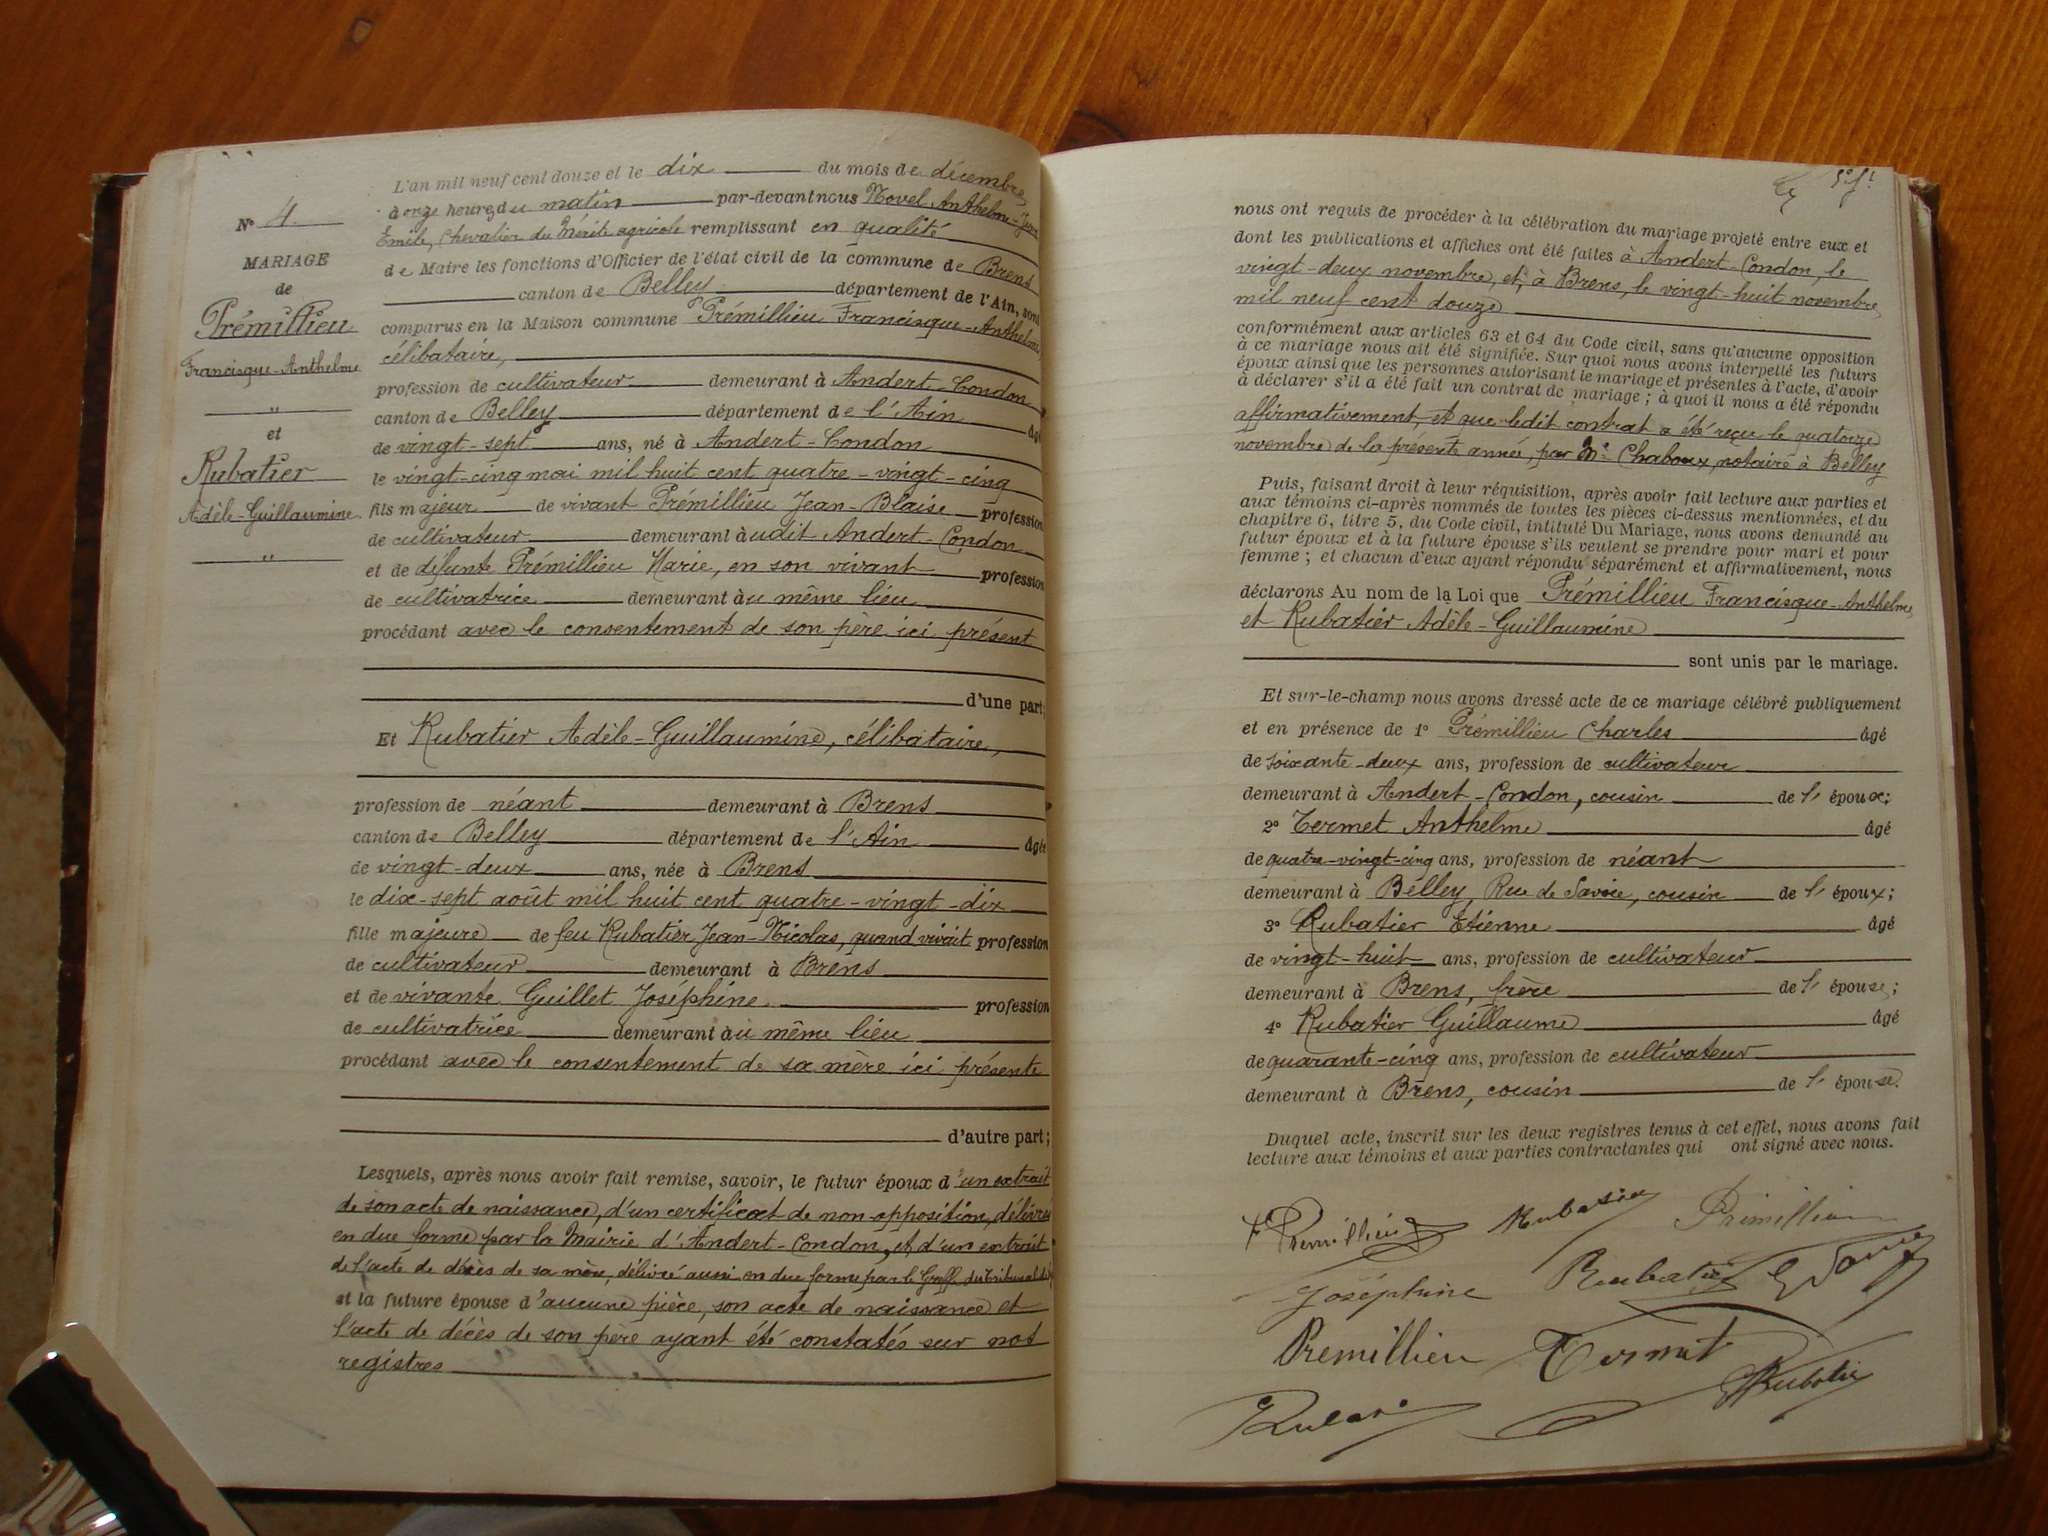 N° 4
MARIAGE
de
Prémillieu
Francisque-Anthelme
"
et
Rubatier
Adèle-Guillaumine
"
L'an mil neuf cent douze et le dix du mois de décembre,
à onze heures du matin par-devant nous Novel Anthelme-Jean
Emile, Chevalier du Mérite agricole remplissant en qualité
de Maire les fonctions d'Officier de l'état civil de la commune de Brens
canton de Belley département de l'Ain, sont
comparus en la Maison commune 1° Prémillieu Francisque-Anthelme
célibataire,
profession de cultivateur demeurant à Andert-Condon
canton de Belley département de l'Ain âgé
de vingt-sept ans, né à Andert-Condon
le vingt-cinq mai mil huit cent quatre-vingt-cinq
fils majeur de vivant Prémillieu Jean-Blaise profession
de cultivateur demeurant àudit Andert-Condon
et de défunte Prémillieu Marie, en son vivant profession
de cultivatrice demeurant àu même lieu
procédant avec le consentement de son père ici présent
d'une part;
Et Rubatier Adèle-Guillaumine, célibataire,
profession de néant demeurant à Brens
canton de Belley département de l'Ain âgée
de vingt-deux ans, née à Brens
le dix-sept août mil huit cent quatre-vingt-dix
fille majeure de feu Rubatier Jean-Nicolas, quand vivait profession
de cultivateur demeurant à Brens
et de vivante Guillet Joséphine profession
de cultivatrice demeurant àu même lieu
procédant avec le consentement de sa mère ici présente
d'autre part;
Lesquels, après nous avoir fait remise, savoir, le futur époux d'un extrait
de son acte de naissance, d'un certificat de non-opposition, délivré
en due forme par la Mairie d'Andert-Condon, et d'un extrait
de l'acte de décès de sa mère, délivré aussi en due forme par le Greffe du tribunal
et la future épouse d'aucune pièce, son acte de naissance et
l'acte de décès de son père ayant été constatés sur nos
registres
5e ft
nous ont requis de procéder à la célébration du mariage projeté entre eux et
dont les publications et affiches ont été faites à Andert-Condon, le
vingt-deux novembre, et, à Brens, le vingt-huit novembre,
mil neuf cent douze
conformément aux articles 63 et 64 du Code civil, sans qu'aucune opposition
à ce mariage nous ait été signifiée. Sur quoi nous avons interpellé les futurs
époux ainsi que les personnes autorisant le mariage et présentes à l'acte, d'avoir
à déclarer s'il a été fait un contrat de mariage; à quoi il nous a été répondu
affirmativement, et que ledit contrat a été reçu le quatorze
novembre de la présente année, par Me Chaboux, notaire à Belley
Puis, faisant droit à leur réquisition, après avoir fait lecture aux parties et
aux témoins ci-après nommés de toutes les pièces ci-dessus mentionnées, et du
chapitre 6, titre 5, du Code civil, intitulé Du Mariage, nous avons demandé au
futur époux et à la future épouse s'ils veulent se prendre pour mari et pour
femme; et chacun d'eux ayant répondu séparément et affirmativement, nous
déclarons Au nom de la Loi que Prémillieu Francisque-Anthelme
et Rubatier Adèle-Guillaumine
sont unis par le mariage.
Et sur-le-champ nous avons dressé acte de ce mariage célébré publiquement
et en présence de 1° Prémillieu Charles âgé
de soixante-deux ans, profession de cultivateur
demeurant à Andert-Condon, cousin de l'époux;
2° Termet Anthelme âgé
de quatre-vingt-cinq ans, profession de néant
demeurant à Belley, Rue de Savoie, cousin de l'époux;
3° Rubatier Etienne âgé
de vingt-huit ans, profession de cultivateur
demeurant à Brens, frère de l'épouse;
4° Rubatier Guillaume âgé
de quarante-cinq ans, profession de cultivateur
demeurant à Brens, cousin de l'épouse.
Duquel acte, inscrit sur les deux registres tenus à cet effet, nous avons fait
lecture aux témoins et aux parties contractantes qui ont signé avec nous.
F Premillieu Rubatier Prémillieu
Joséphine Rubatier
Premillieu Termet
Rubatier